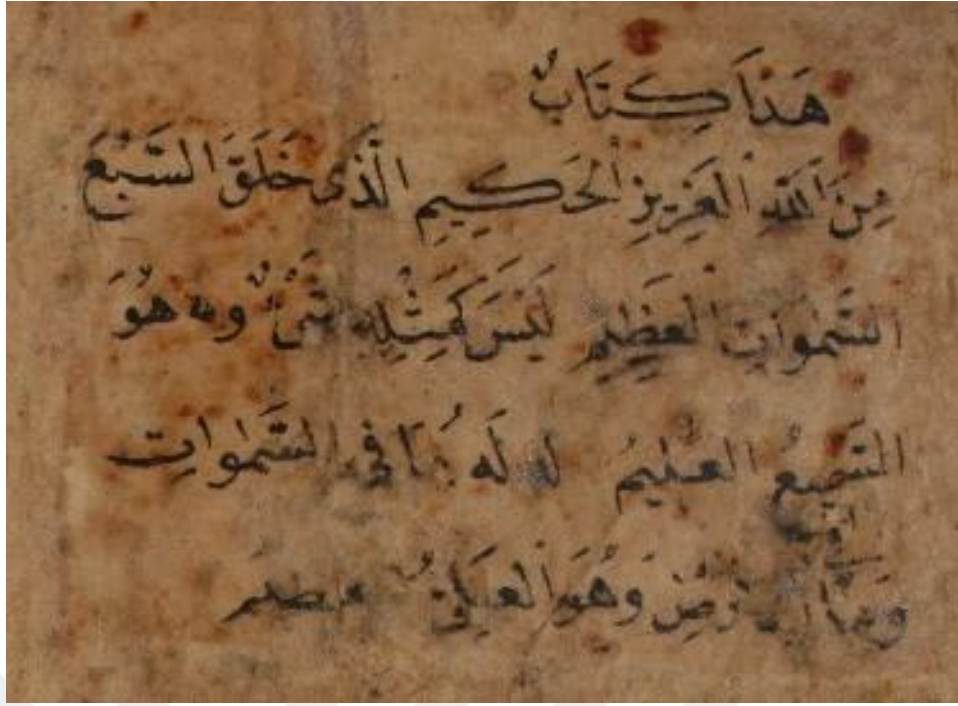 هَذَا كِتَابٌ
مِنَ اللهِ الْعَزِيزِ الْحَكِيمِ الَّذِى خَلَقَ السَّبْعَ
السَّمٰوَاتِ الْعَظِيمِ لَيْسَ كَمِثْلِهِ شَىْءٌ وَهُوَ
السَّمِيعُ الْعَلِيمُ لَهُ مَا فِى السَّمٰوَاتِ
وَمَا الْأَرْضِ وَهُوَ الْعَلِىُّ عظيم